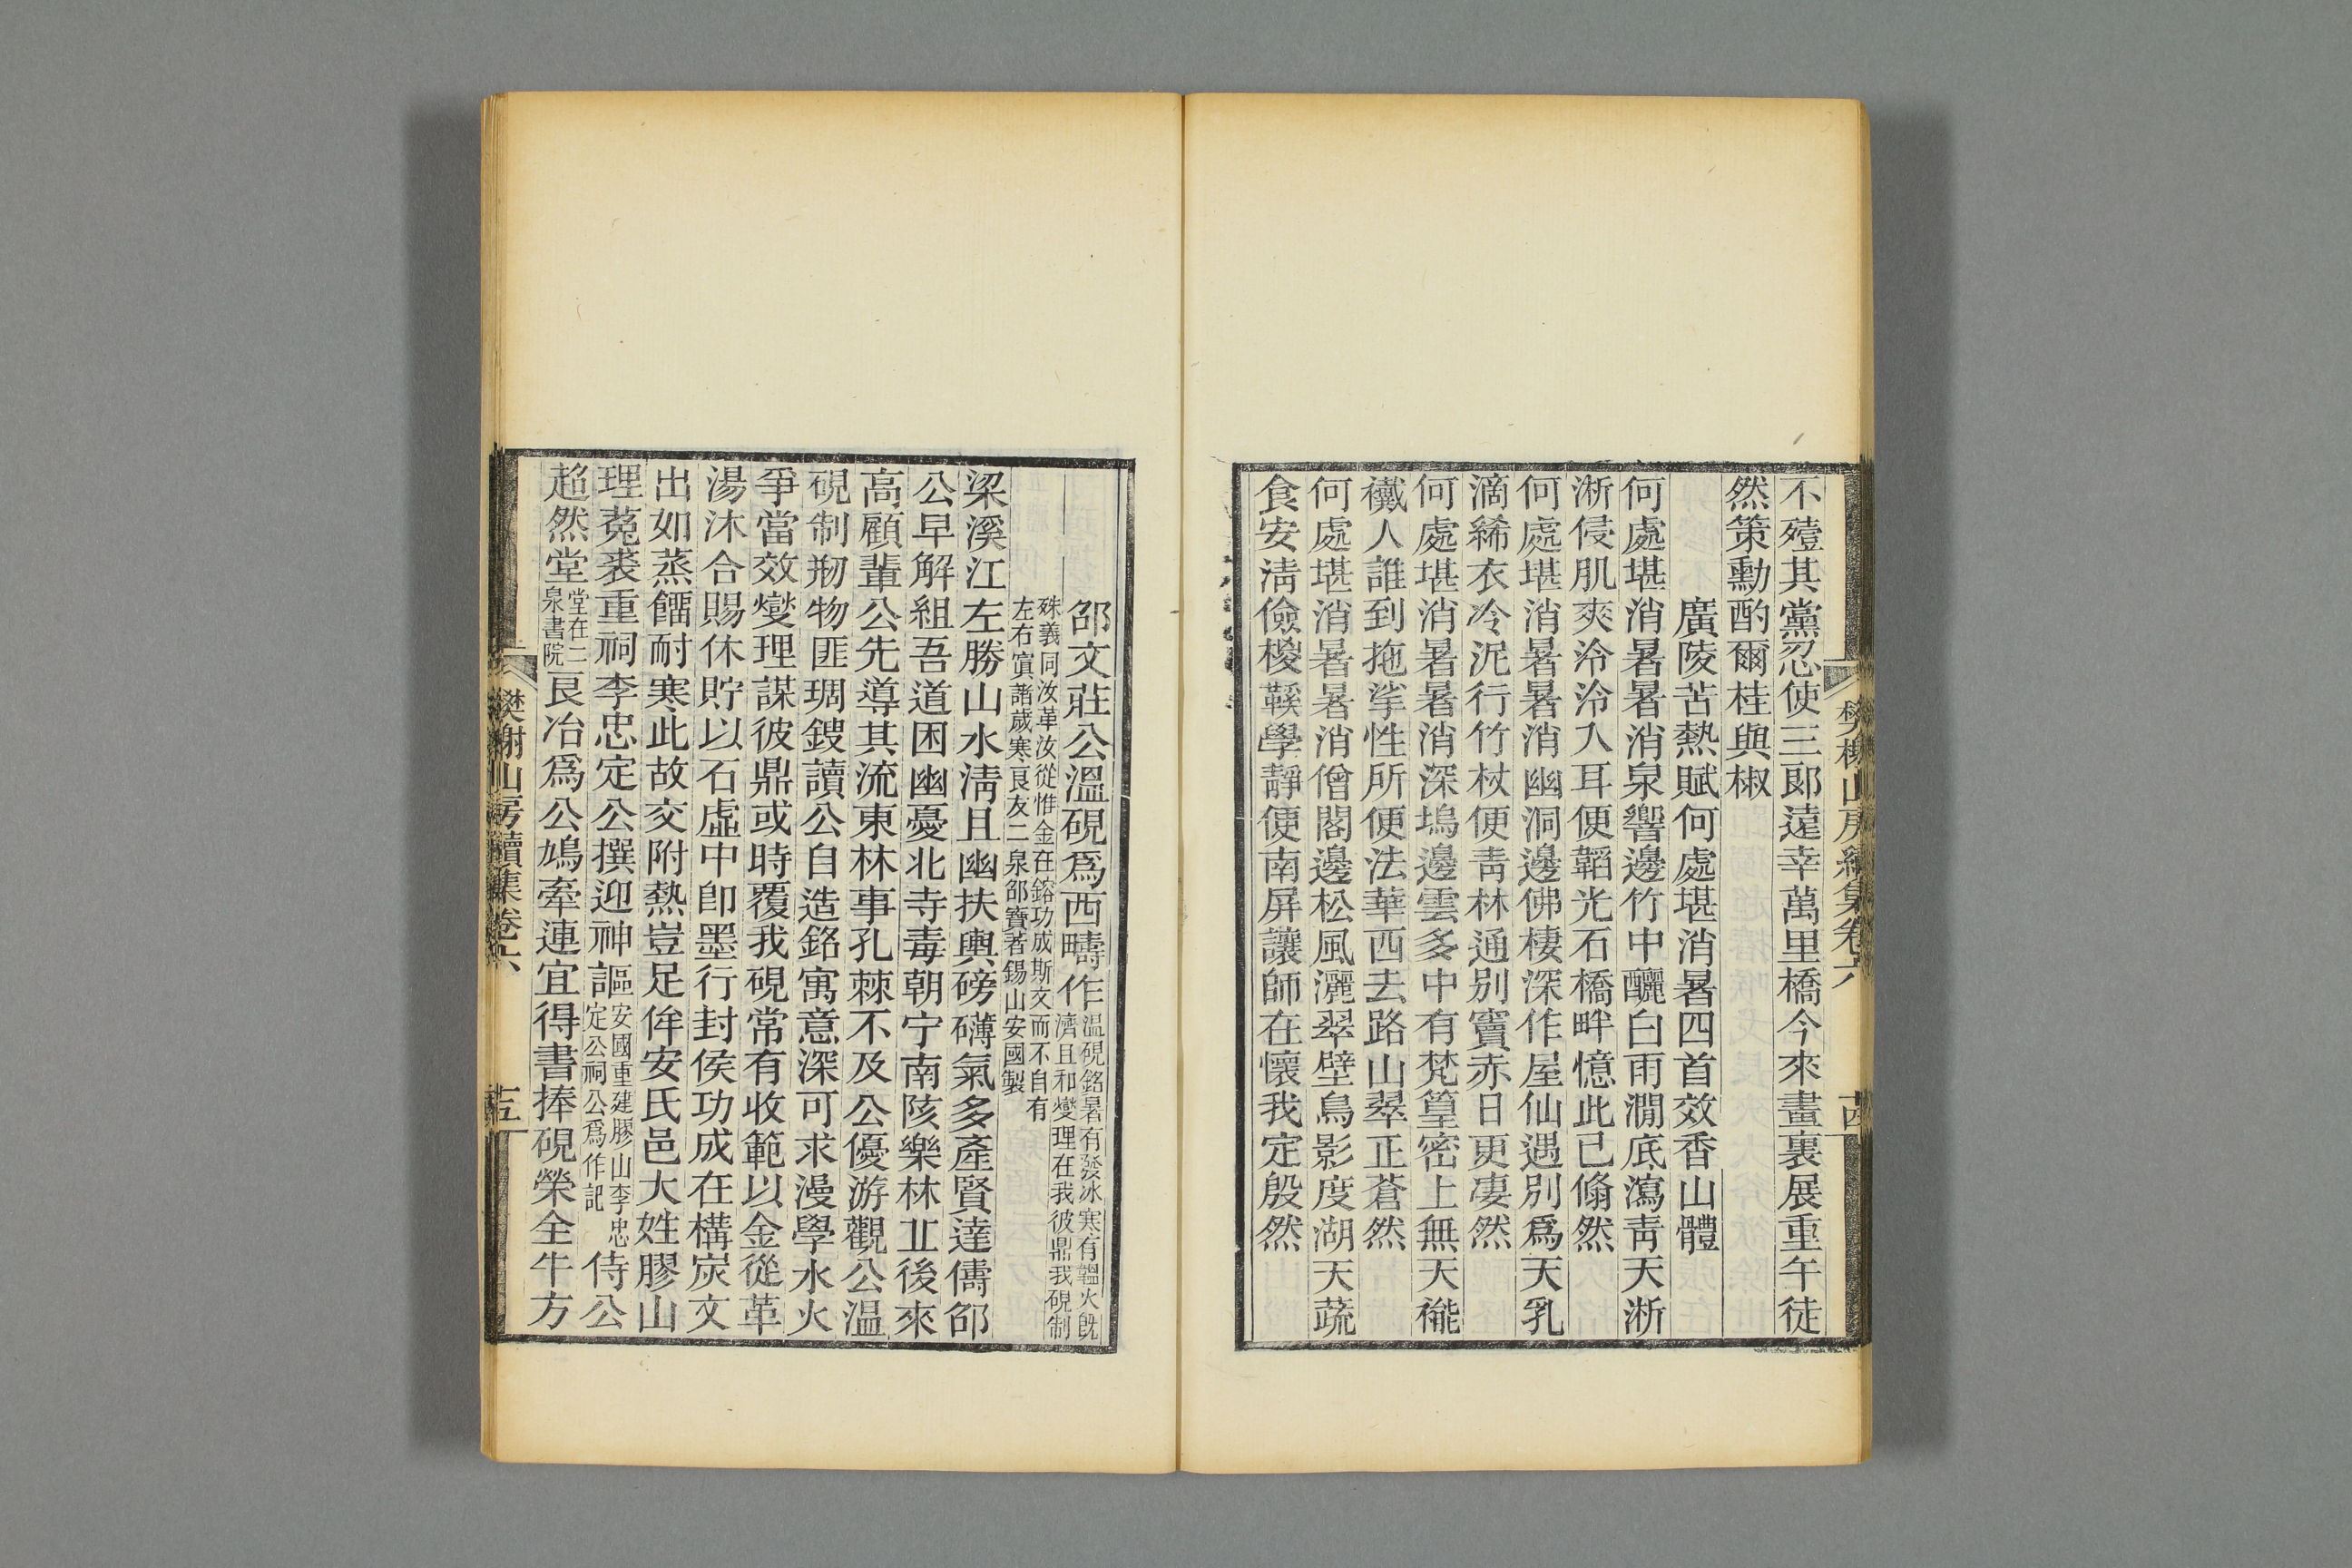 樊榭山房續集卷六
十四
不殪其黨忍使三郎遠幸萬里橋今來畫裏展重午徒
然策勳酌爾桂與椒
廣陵苦熱賦何處堪消暑四首效香山體
何處堪消暑暑消泉響邊竹中釃白雨澗底瀉青天淅
淅侵肌爽泠泠入耳便韜光石橋畔憶此已翛然
何處堪消暑暑消幽洞邊佛棲深作屋仙遇別爲天乳
滴絺衣冷泥行竹杖便青林通别竇赤日更凄然
何處堪消暑暑消深塢邊雲多中有梵篁密上無天褦
襶人誰到拖挲性所便法華西去路山翠正蒼然
何處堪消暑暑消僧閣邊松風灑翠壁鳥影度湖天蔬
食安淸儉椶鞵學靜便南屏讓師在懷我定殷然
邵文莊公溫硯爲西疇作溫硯銘暑有發冰寒有韞火旣
濟且和燮理在我彼鼎我硯制
殊義同汝革汝從惟金在鎔功成斯文而不自有
左右寘諸歲寒良友二泉邵寶著錫山安國製
梁溪江左勝山水淸且幽扶輿磅礴氣多產賢達儔邵
公早解組吾道困幽憂北寺毒朝宁南陔樂林丘後來
高顧輩公先導其流東林事孔棘不及公優游觀公溫
硯制剏物匪琱鎪讀公自造銘寓意深可求漫學水火
爭當效燮理謀彼鼎或時覆我硯常有收範以金從革
湯沐合賜休貯以石虛中卽墨行封侯功成在構炭文
出如蒸餾耐寒此故交附熱豈足侔安氏邑大姓膠山
理菟裘重祠李忠定公撰迎神謳安國重建膠山李忠
定公祠公爲作記侍公
超然堂堂在二
泉書院艮冶爲公鳩牽連宜得書捧硯榮全牛方
樊榭山房續集卷六
十五